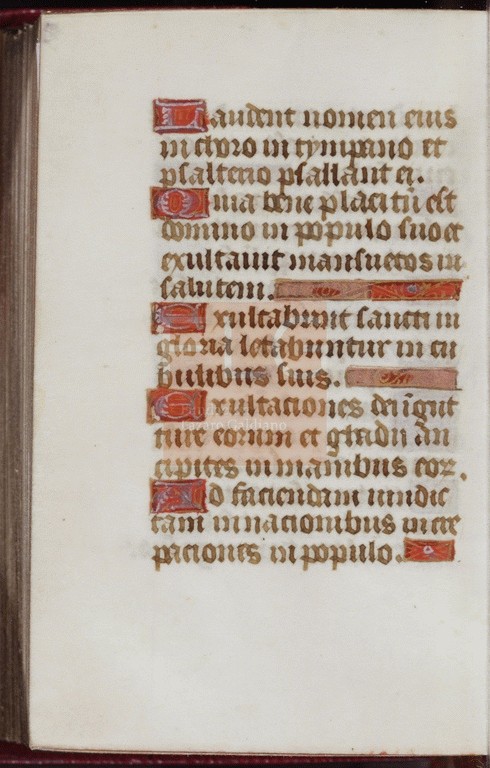 Laudent nomen eius
in choro in tympano et
psalterio psallant ei.
Quia bene placitū est
domino in populo suo et
exultauit mansuetos in
salutem.
Exultabunt sancti in
gloria letabuntur in cu
bilibus suis.
Exultaciones dei ī gut
ture eorum et gladii an
cipites in manibus eoꝝ.
Ad faciendam uindic
tam in nacionibus incre
paciones in populo.
Lázaro Galdiano